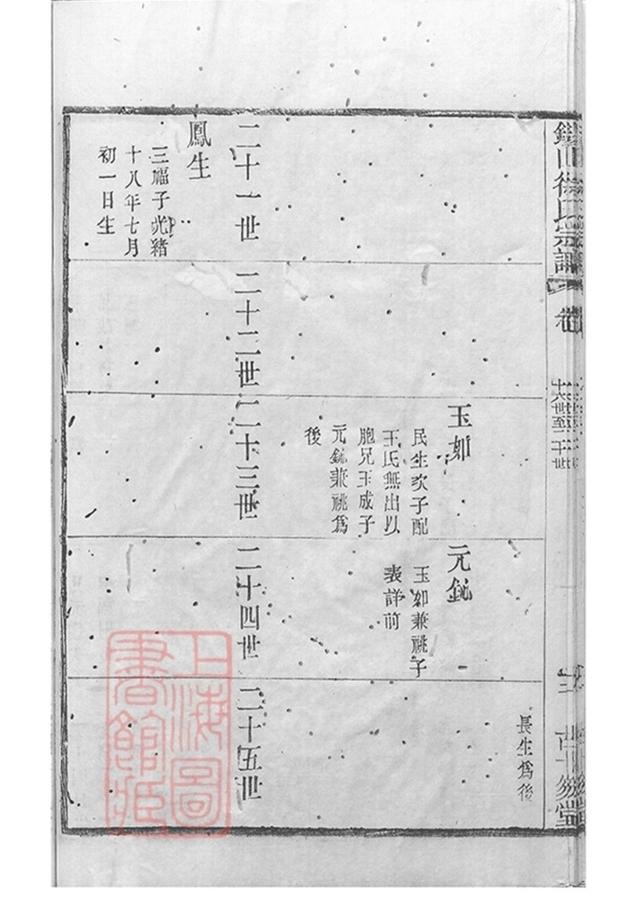 長生為後
玉如
民生次子配
王氏無出以
胞兄玉成子
元鈨兼祧為
後
元鈨
玉如兼祧子
表詳前
二十一世
二十二世
二十三世
二十四世
二十五世
鳳生
三福子光緒
十八年七月
初一日生
徐氏宗譜
卷
十六世至二十世
上海圖
書館藏